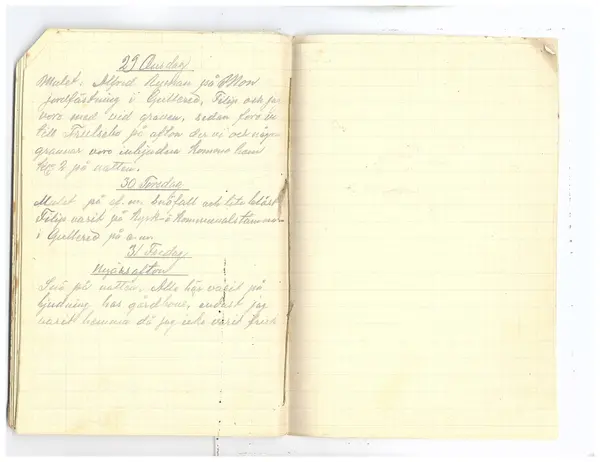 29 Onsdag
Mulet. Alfred Nyman på
jordfästning i Gullered, Filip och jag
voro med vid graven, sedan foro vi
till på afton der vi och några
grannar voro inbjudna komma hem
kl. 2 på natten.
30 Torsdag
Mulet på af. m. Snöfall och lite blåst
Filip varit på kyrk- o kommunalstämma
i Gullered på e.m.
31 Fredag
Nyårsafton
Snö på natten, Alla här varit på
bjudning hos endast jag
varit hemma då jag icke varit frisk